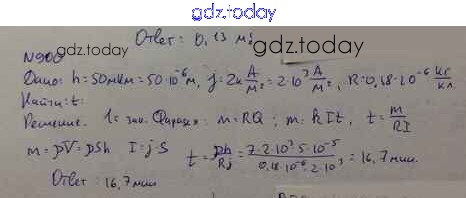 gdz.today
Ответ: 0,13 м³
gdz.today gdz.today
N900
Дано: h=50мкм=50·10⁻⁶м, j=2к А/м²=2·10³ А/м², R=0,18·10⁻⁶ кг/кл.
Найти: t.
Решение. 1ᵃ зак. Фарадея: m=RQ; m=kIt, t=m/RI
m=ρV=ρSh I=j·S t=ρh/Rj=7·2·10³·5·10⁻⁵/0,18·10⁻⁶·2·10³=16,7 мин.
Ответ: 16,7 мин
gdz.today